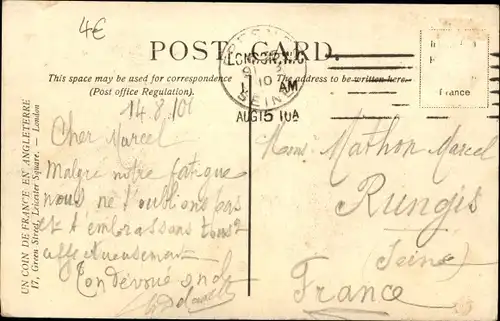 4€
POST CARD.
LONDON, W.C.
FRESNES
SEINE
10
AM
AUG 15 10A
This space may be used for correspondence
(Post office Regulation).
The address to be written here.
France
UN COIN DE FRANCE EN ANGLETERRE
17, Green Street, Leicester Square. — London
14.8.10
Cher Marcel
Malgré notre fatigue
nous ne t'oublions pas
et t'embrassons tous 2
affectueusement
Ton dévoué oncle
Mathon Marcel
Rungis
(Seine)
France